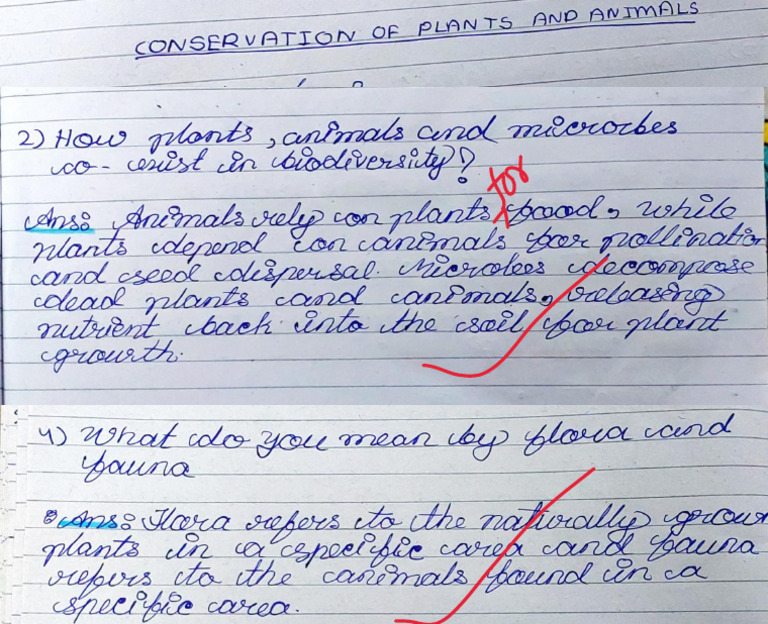 CONSERVATION OF PLANTS AND ANIMALS
2) How plants, animals and microbes
co-exist in biodiversity?
Ans: Animals rely on plants for food, while
plants depend on animals for pollination
and seed dispersal. Microbes decompose
dead plants and animals, releasing
nutrient back into the soil for plant
growth.
4) What do you mean by flora and
fauna
Ans: Flora refers to the naturally grown
plants in a specific area and fauna
refers to the animals found in a
specific area.